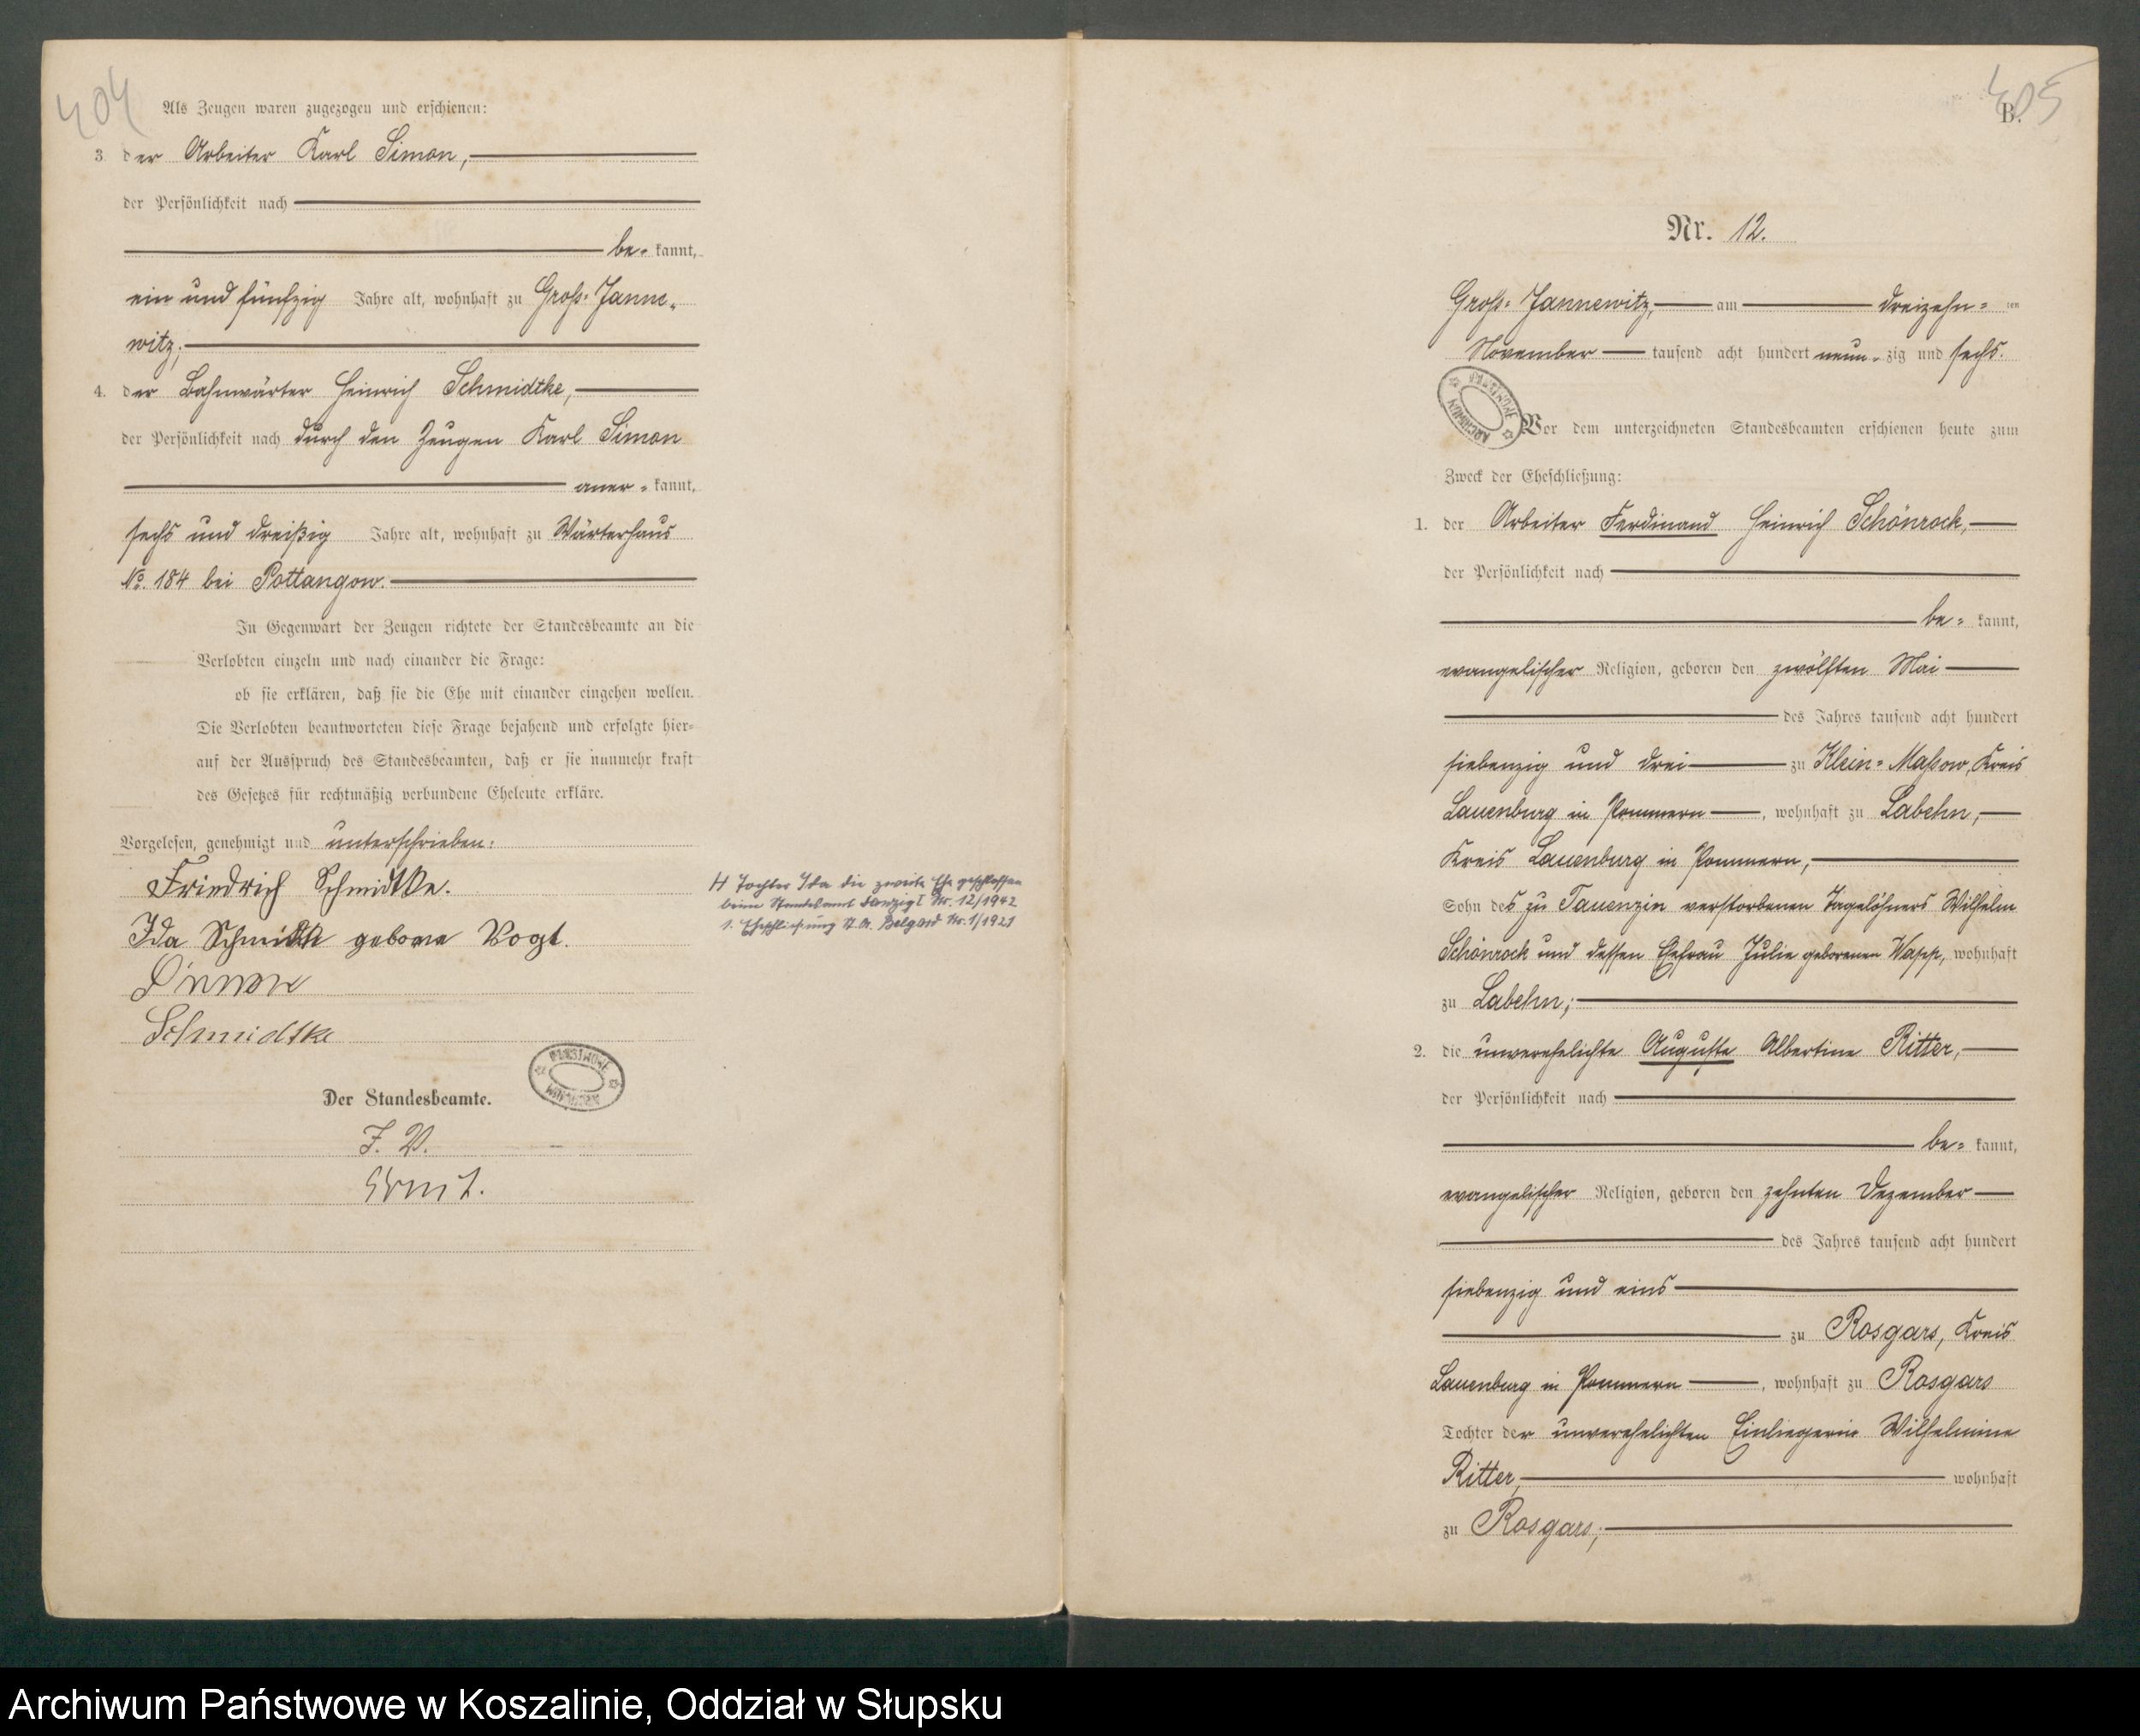 404
Als Zeugen waren zugezogen und erschienen:
3. der Arbeiter Karl Simon,
der Persönlichkeit nach
be= kannt,
ein und fünfzig Jahre alt, wohnhaft zu Groß=Janne=
witz;
4. der Bahnwärter Heinrich Schmidtke,
der Persönlichkeit nach durch den Zeugen Karl Simon
aner= kannt,
sechs und dreißig Jahre alt, wohnhaft zu Wärterhaus
No. 184 bei Pottangow.
In Gegenwart der Zeugen richtete der Standesbeamte an die
Verlobten einzeln und nach einander die Frage:
ob sie erklären, daß sie die Ehe mit einander eingehen wollen.
Die Verlobten beantworteten diese Frage bejahend und erfolgte hier=
auf der Ausspruch des Standesbeamten, daß er sie nunmehr kraft
des Gesetzes für rechtmäßig verbundene Eheleute erkläre.
Vorgelesen, genehmigt und unterschrieben:
Friedrich Schmidtke.
Ida Schmidtke geborne Vogt.
Simon
Schmidtke
Der Standesbeamte.
J. V.
H Tochter Ida die zweite Ehe geschlossen
beim Standesamt Danzig I Nr. 12/1942
1. Eheschließung St. A. Belgard Nr. 1/1921
ARCHIWUM PAŃSTWOWE
405
B.
Nr. 12.
Groß=Jannewitz, am dreizehn= ten
November tausend acht hundert neun= zig und sechs.
ARCHIWUM PAŃSTWOWE
Vor dem unterzeichneten Standesbeamten erschienen heute zum
Zweck der Eheschließung:
1. der Arbeiter Ferdinand Heinrich Schönrock,
der Persönlichkeit nach
be= kannt,
evangelischer Religion, geboren den zwölften Mai
des Jahres tausend acht hundert
siebenzig und drei zu Klein=Maßow, Kreis
Lauenburg in Pommern, wohnhaft zu Labehn,
Kreis Lauenburg in Pommern,
Sohn des zu Tauenzin verstorbenen Tagelöhners Wilhelm
Schönrock und dessen Ehefrau Julie geborenen Wapp, wohnhaft
zu Labehn;
2. die unverehelichte Auguste Albertine Ritter,
der Persönlichkeit nach
be= kannt,
evangelischer Religion, geboren den zehnten Dezember
des Jahres tausend acht hundert
siebenzig und eins
zu Rosgars, Kreis
Lauenburg in Pommern, wohnhaft zu Rosgars
Tochter der unverehelichten Einliegerin Wilhelmine
Ritter, wohnhaft
zu Rosgars;
Archiwum Państwowe w Koszalinie, Oddział w Słupsku